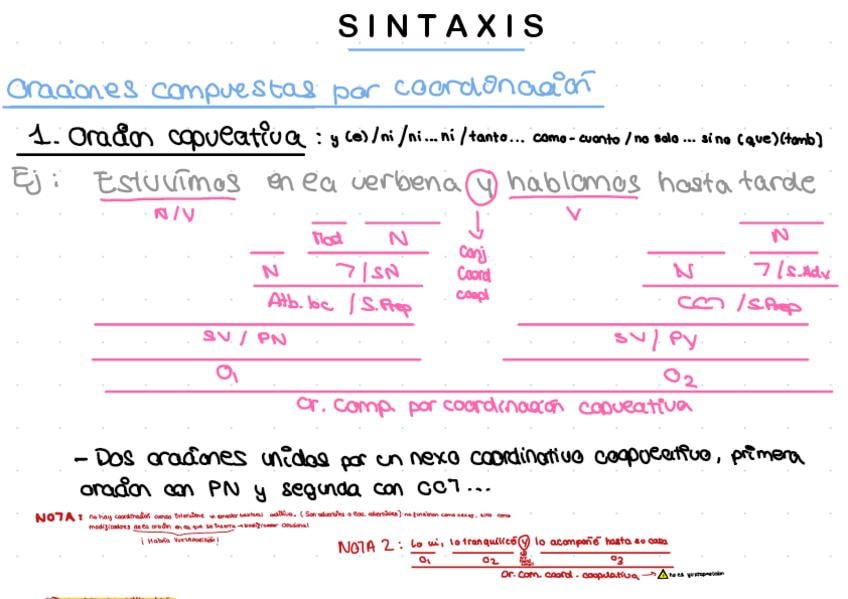 SINTAXIS
Oraciones compuestas por coordinación
1. Oración copulativa : y (e) / ni / ni... ni / tanto... como - cuanto / no solo ... sino (que) (tamb)
Ej : Estuvimos en la verbena y hablamos hasta tarde
N/V V
Mod N Conj N
N T/SN Coord N T/S.Adv
Atb. loc / S.Prep copul CCT / S.Prep
SV / PN SV / PV
O1 O2
Or. Comp. por coordinación copulativa
- Dos oraciones unidas por un nexo coordinativo copulativo, primera
oración con PN y segunda con CCT...
NOTA : no hay coordinación cuando
modificadores de la oración en la que se inserta → modificador oracional
NOTA 2 : Lo vi, lo tranquilicé y lo acompañé hasta su casa
O1 O2 O3
Or. Com. coord. copulativa → no es yuxtaposición